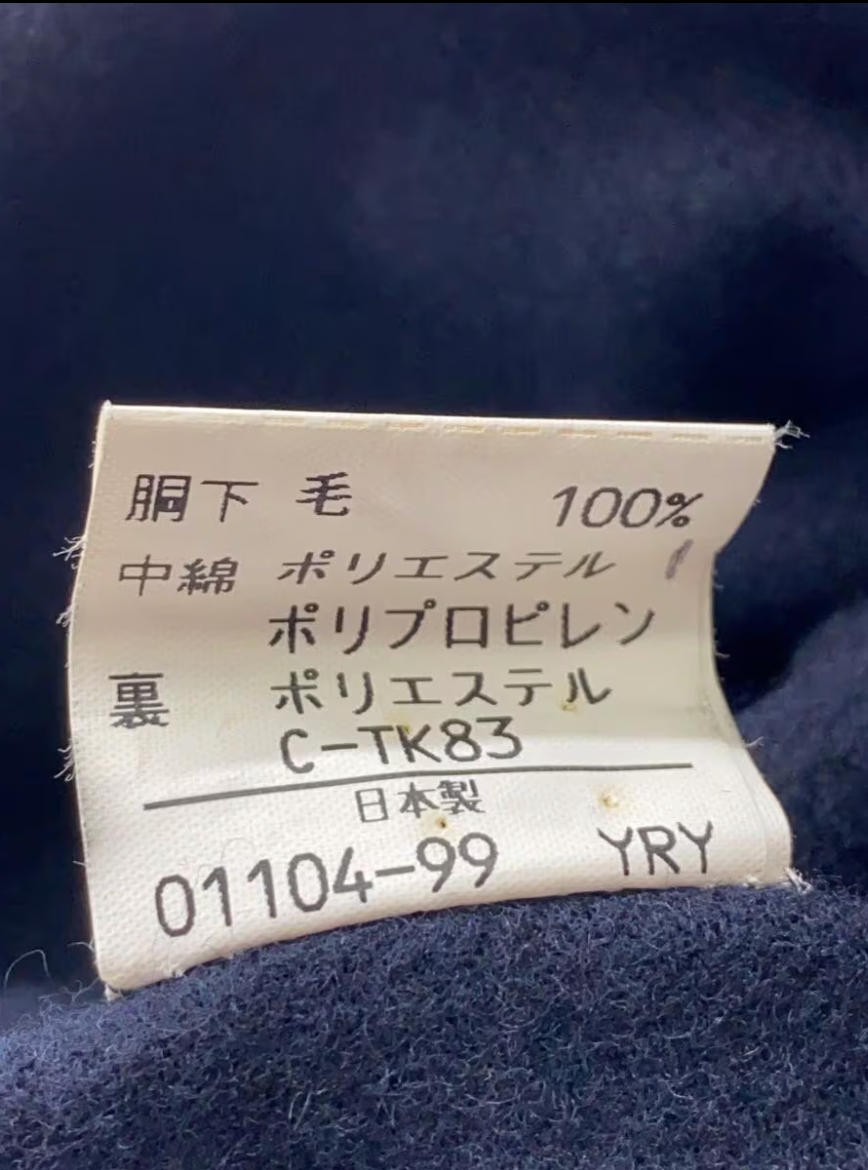 胴下 毛 100%
中綿 ポリエステル
ポリプロピレン
裏 ポリエステル
C-TK83
日本製
01104-99 YRY